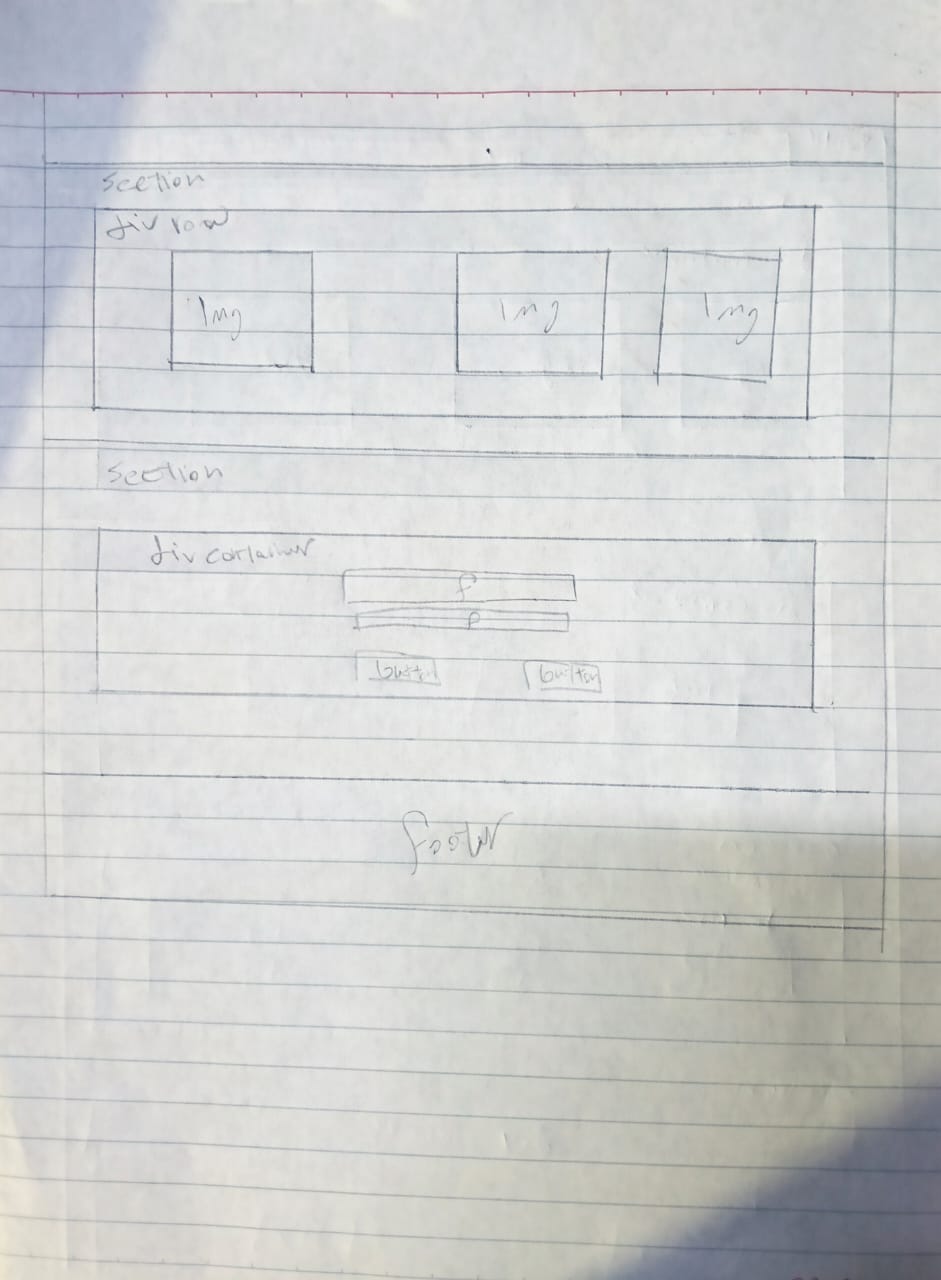 section
div row
Img Img Img
section
div container
P
P
button button
footer